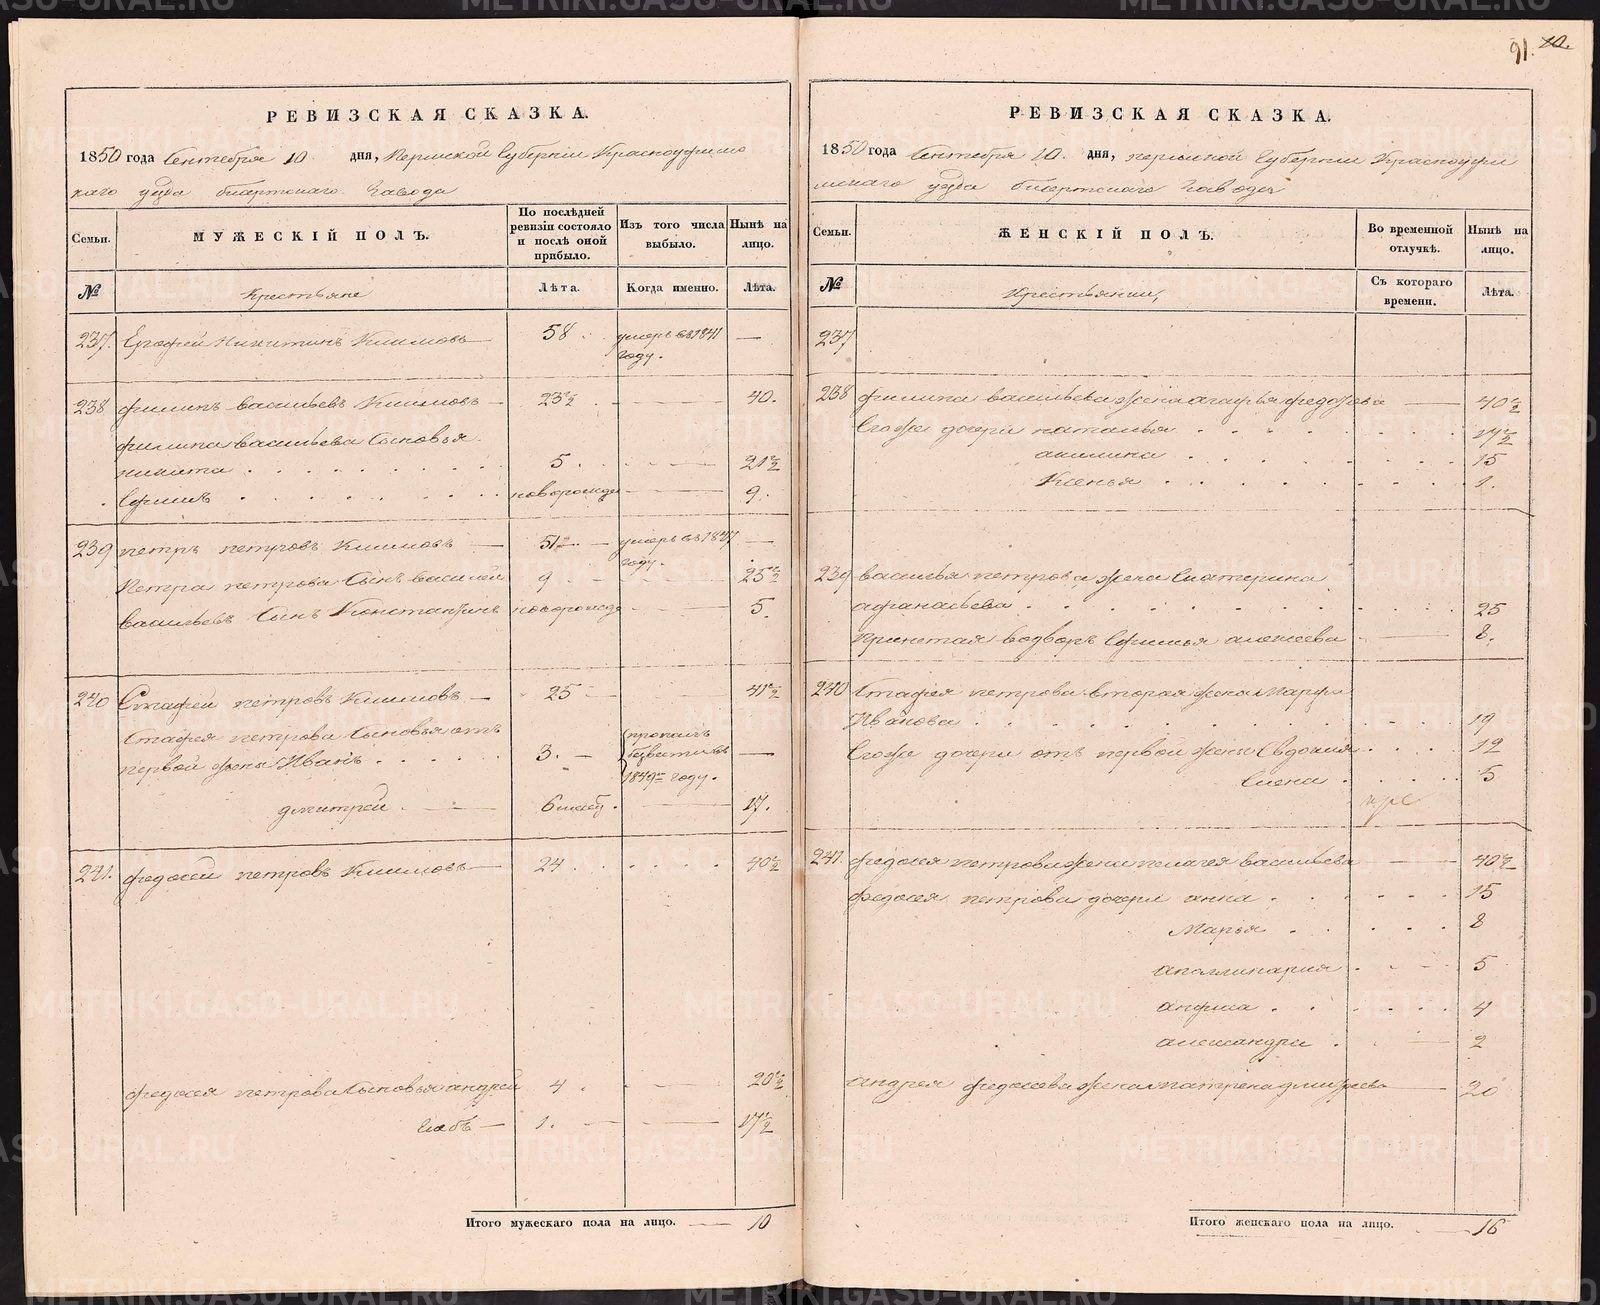 91. 10.
РЕВИЗСКАЯ СКАЗКА.
1850 года Сентября 10 дня, Пермской Губернiи Красноуфимс
каго уѣзда бисертскаго Завода
Семьи.
МУЖЕСКІЙ ПОЛЪ.
По послѣдней ревизіи состояло и послѣ оной прибыло.
Изъ того числа выбыло.
Нынѣ на лицо.
№
Крестьяне
Лѣта.
Когда именно.
Лѣта.
237. Ерофей Никитинъ Климовъ 58. умеръ въ 1841 —
году.
238 филипъ васильевъ Климовъ 23½ 40.
филипа васильева Сыновья
никита 5. 21½
Ефимъ новорожде 9.
239 петръ петровъ Климовъ 51 умеръ въ 1847 —
году.
Петра петрова Сынъ василей 9 25½
васильевъ Сынъ Константинъ новорожде 5.
240 Естафей петровъ Климовъ 25 41½
Естафея петрова Сыновья отъ
первой жены Иванъ 3. пропалъ безвести въ 1849 году. —
дмитрей 6 17.
241. федосей петровъ Климовъ 24 40½
федосея петрова Сыновья андрей 4 20½
Глебъ 1. 17½
Итого мужескаго пола на лицо. 10
РЕВИЗСКАЯ СКАЗКА.
1850 года Сентября 10. дня, пермской Губернiи Красноуфи
мскаго уѣзда бисертскаго Завода
Семьи.
ЖЕНСКІЙ ПОЛЪ.
Во временной отлучкѣ.
Нынѣ на лицо.
№
Крестьянки,
Съ котораго времени.
Лѣта.
237
238 филипа васильева жена агафья федотова 40½
Егоже дочери наталья 17½
акилина 15
Ксенья 1.
239 василья петрова жена Екатерина
афанасьева 25
принятая водворъ Ефимья алексеева 8.
240 Естафея петрова вторая жена Марфа
Иванова 19
Егоже дочери отъ первой жены Евдокия 12
Елена 5
241. федосея петрова жена пелагея васильева 40½
федосея петрова дочери анна 15
Марья 8
аполлинария 5
анфиса 4
александра 2
андрея федосеева жена матрена 20
Итого женскаго пола на лицо. 16
METRIKI.GASO-URAL.RU